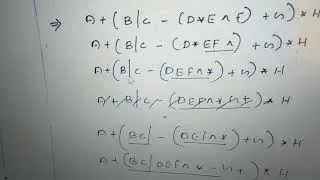 ⇒ A + (B|C - (D*E^F) + G) * H
A + (B|C - (D*EF^) + G) * H
A + (B|C - (DEF^*) + G) * H
A + B|C - (DEF^*G+ * H
A + (BC| - (DEF^*) + G) * H
A + (BC|DEF^* - G+) * H